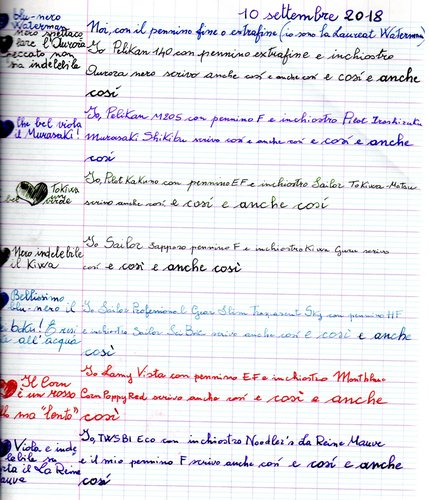 10 settembre 2018
blu-nero
Waterman
Noi, con il pennino fine o extrafine (io sono la Laureat Waterman)
nero spettaco
lare l'Aurora
peccato non
sia indelebile
Io Pelikan 140 con pennino extrafine e inchiostro
Aurora nero scrivo anche così e anche così e così e anche
così
Che bel viola
il Murasaki!
Io, Pelikan M205 con pennino F e inchiostro Pilot Iroshizuku
Murasaki Shikibu scrivo così e anche così e così e anche
così
Tokiwa
bel
verde
Io, Pilot Kakuno con pennino EF e inchiostro Sailor Tokiwa-Matsu
scrivo anche così e così e anche così
Nero indelebile
il Kiwa
Io Sailor Sapporo pennino F e inchiostro Kiwa Guro scrivo
così e così e anche così
Bellissimo
blu-nero il
Io Sailor Professional Gear Slim Trasparent Sky con pennino HF
e inchiostro Sailor Sei Boku scrivo anche così e così e anche
a all'acqua
così
Il Corn
è un rosso
ma "lento"
Io Lamy Vista con pennino EF e inchiostro Montblanc
Corn Poppy Red scrivo anche così e così e anche
così
Viola e inde
lebile
La Reine
auve
Io, TWSBI Eco con inchiostro Noodler's La Reine Mauve
e il mio pennino F scrivo anche così e così e anche
così